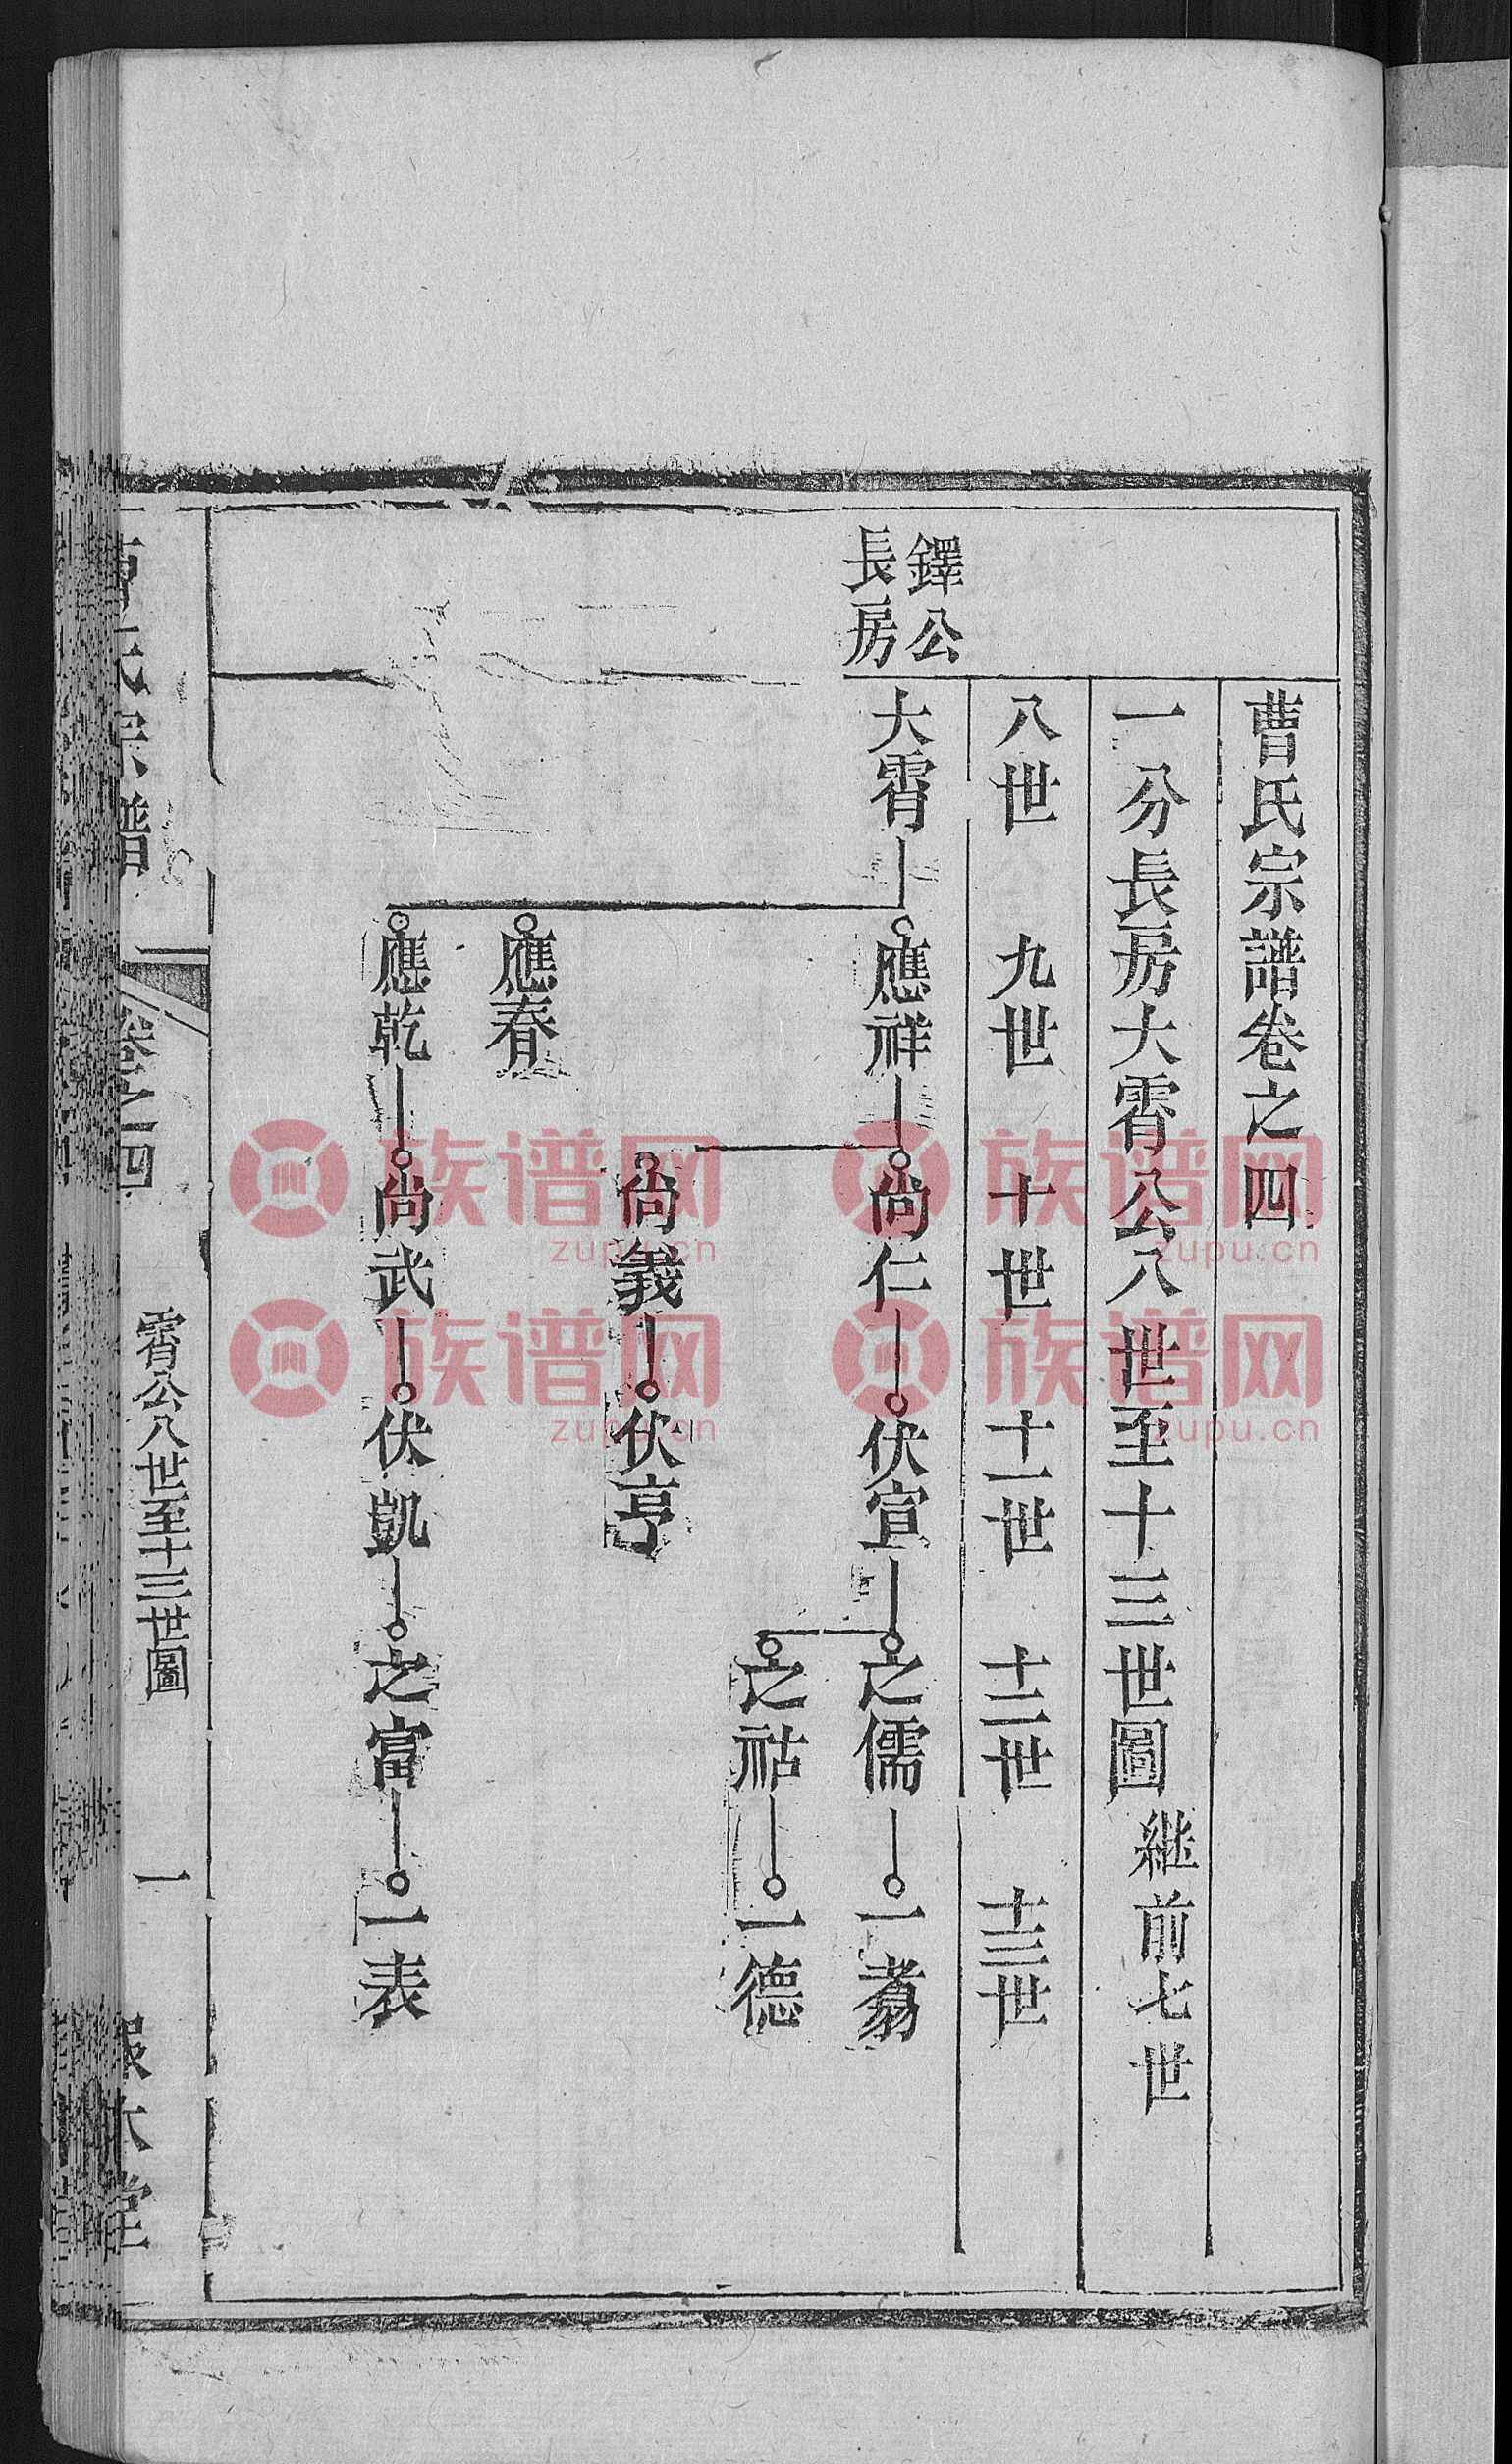 曹氏宗譜卷之四
一分長房大霄公八世至十三世圖 繼前七世
八世 九世 十世 十一世 十二世 十三世
鐸公
長房
大霄 應祥 尚仁 伏宣 之儒 一翥
之祜 一德
尚義 伏亨
應春
應乾 尚武 伏凱 之富 一表
曹氏宗譜 卷之四 霄公八世至十三世圖 一 報本堂
族谱网
zupu.cn
族谱网
zupu.cn
族谱网
zupu.cn
族谱网
zupu.cn